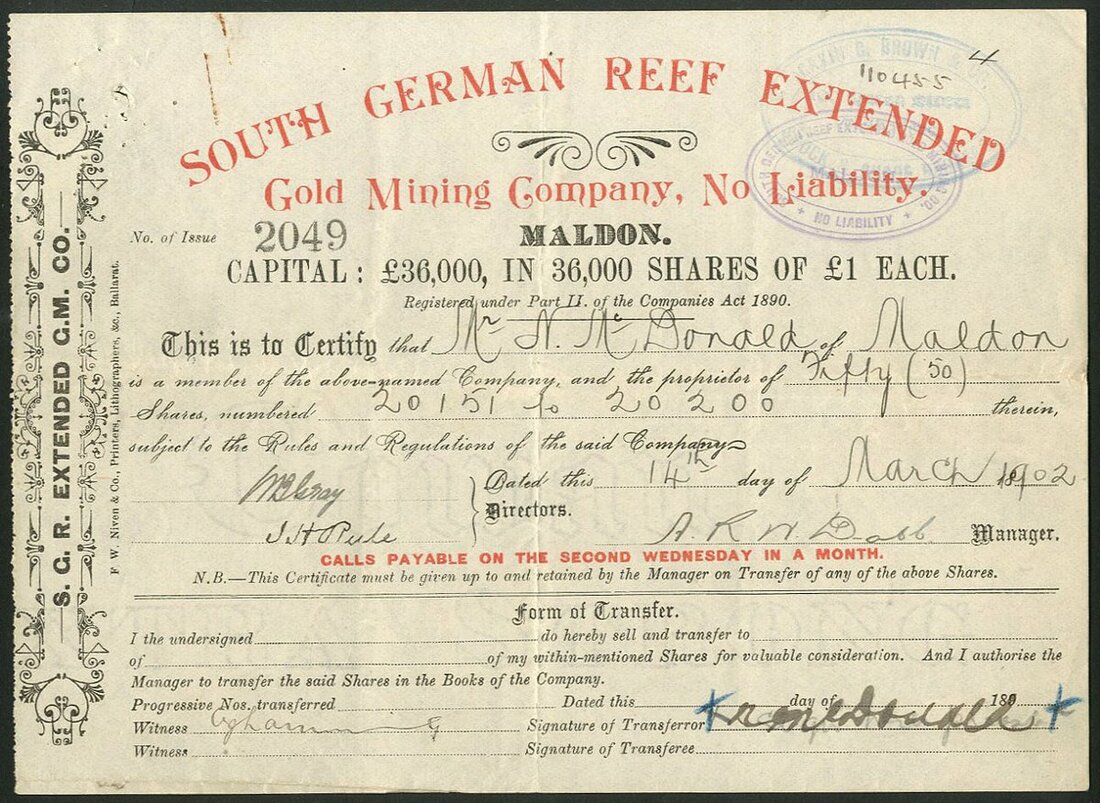 4
110455
SOUTH GERMAN REEF EXTENDED
Gold Mining Company, No Liability.
NO LIABILITY
No. of Issue 2049 MALDON.
CAPITAL: £36,000, IN 36,000 SHARES OF £1 EACH.
Registered under Part II. of the Companies Act 1890.
This is to Certify that Mr N. Mc Donald of Maldon
is a member of the above-named Company, and the proprietor of Fifty (50)
Shares, numbered 20151 to 20200 therein,
subject to the Rules and Regulations of the said Company
Dated this 14th day of March 1902
Directors.
J H Rule A. R. W. Dabb Manager.
CALLS PAYABLE ON THE SECOND WEDNESDAY IN A MONTH.
N.B.—This Certificate must be given up to and retained by the Manager on Transfer of any of the above Shares.
Form of Transfer.
I the undersigned do hereby sell and transfer to
of of my within-mentioned Shares for valuable consideration. And I authorise the
Manager to transfer the said Shares in the Books of the Company.
Progressive Nos. transferred Dated this day of 189
Witness Signature of Transferror N McDonald
Witness Signature of Transferee
S. G. R. EXTENDED G.M. CO.
F. W. Niven & Co., Printers, Lithographers, &c., Ballarat.